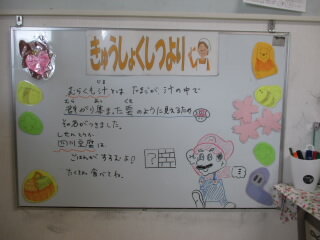 きゅうしょくしつより
じる
むらくも汁とは たまごが、汁の中で
むら あつ くも
群がり集まった雲のように見えるため
その名がつきました。
しせんとうふ
四川豆腐は、
ごはんがすすむよ♪
たくさん食べてね。
?